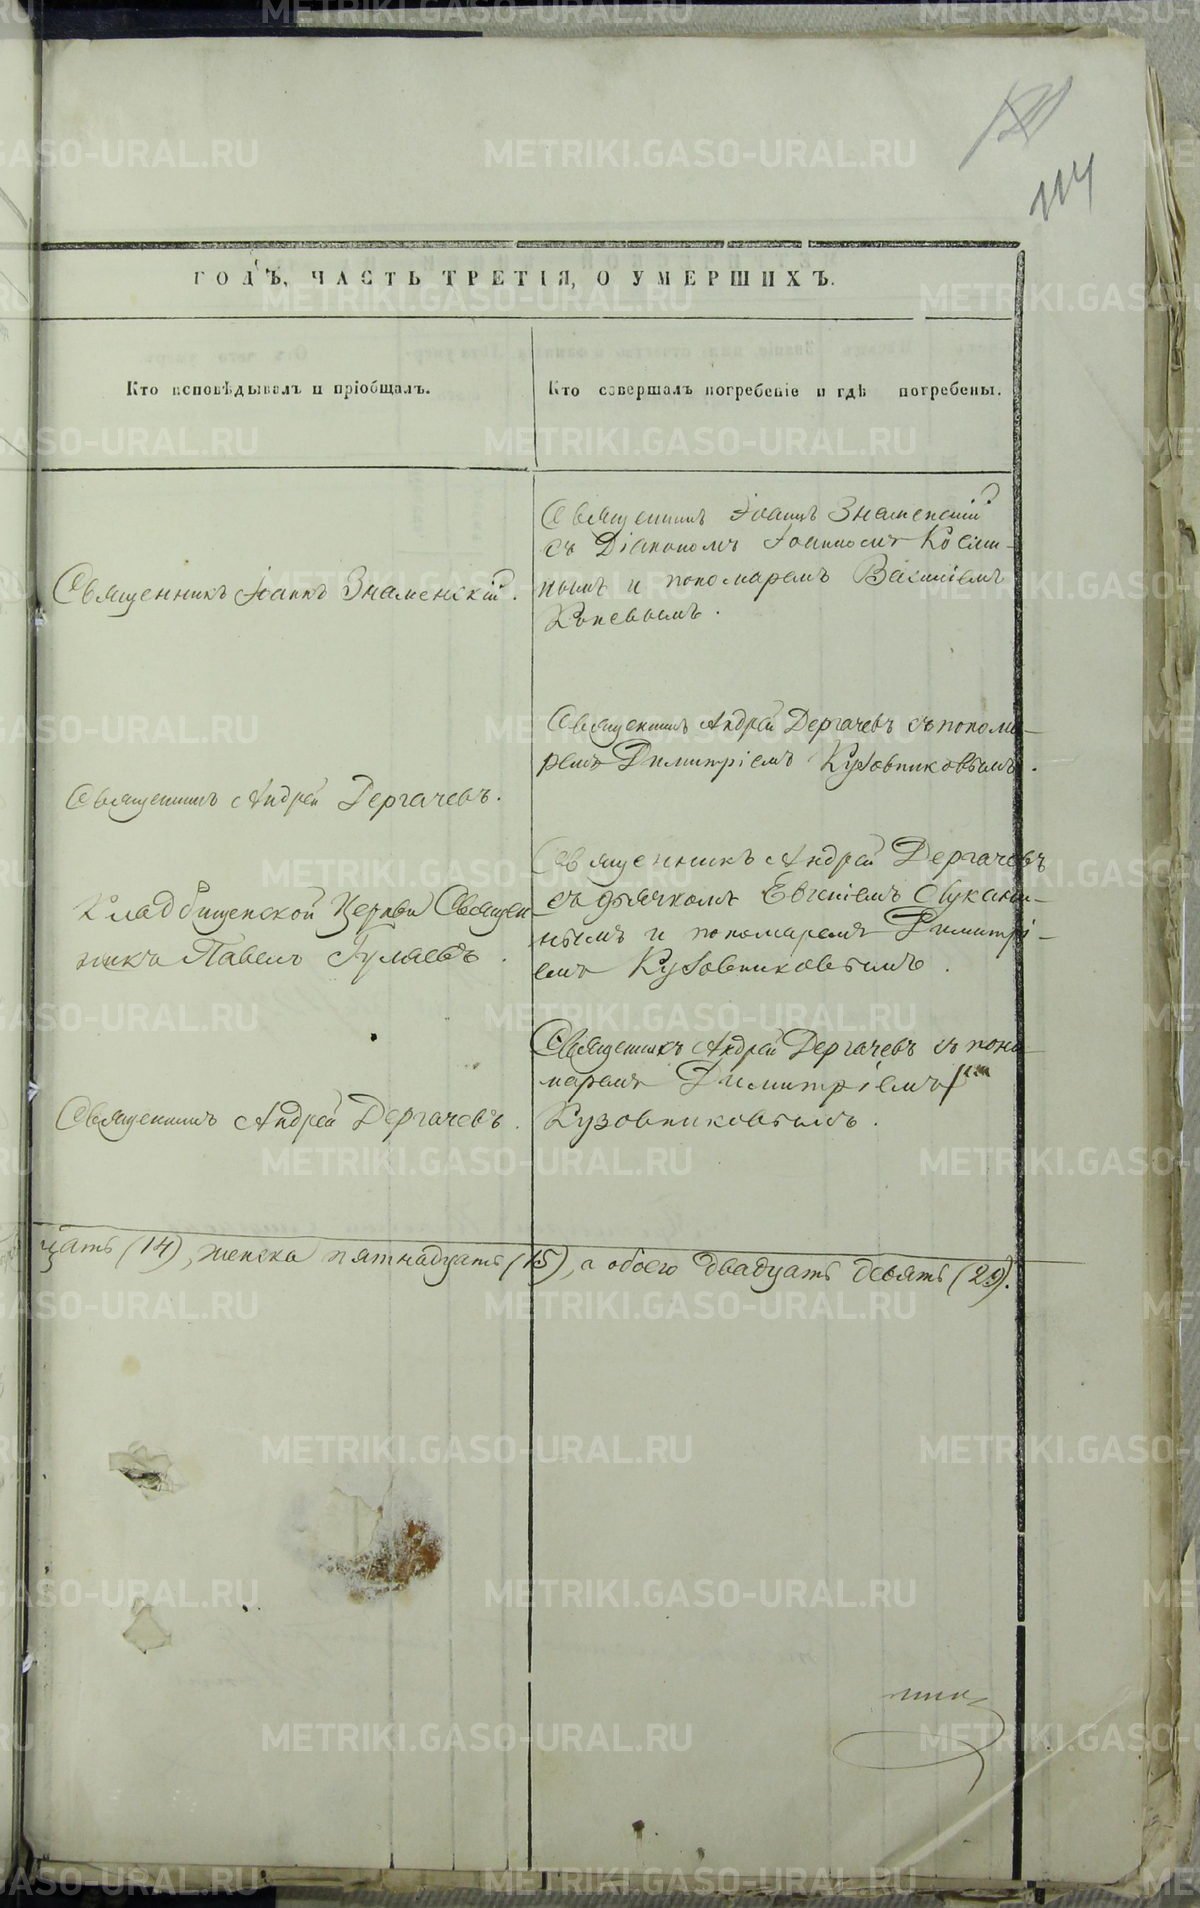 114
ГОДЪ, ЧАСТЬ ТРЕТІЯ, О УМЕРШИХЪ.
Кто исповѣдывалъ и пріобщалъ.
Кто совершалъ погребеніе и гдѣ погребены.
Священникъ Іоаннъ Знаменскій.
Священникъ Іоаннъ Знаменскій
съ Діакономъ Іоанномъ
и пономаремъ Василіемъ
Священникъ Андрей Дергачевъ.
Священникъ Андрей Дергачевъ съ понома-
ремъ Димитріемъ Кузовниковымъ.
Кладбищенской Церкви Священ-
никъ Павелъ Гуляевъ.
Священникъ Андрей Дергачевъ
съ дьячкомъ Евгеніемъ Лукани-
нымъ и пономаремъ Димитрі-
емъ Кузовниковымъ.
Священникъ Андрей Дергачевъ.
Священникъ Андрей Дергачевъ съ поно-
маремъ Димитріемъ
Кузовниковымъ.
цать (14), женска пятнадцать (15), а обоего двадцать девять (29).
METRIKI.GASO-URAL.RU